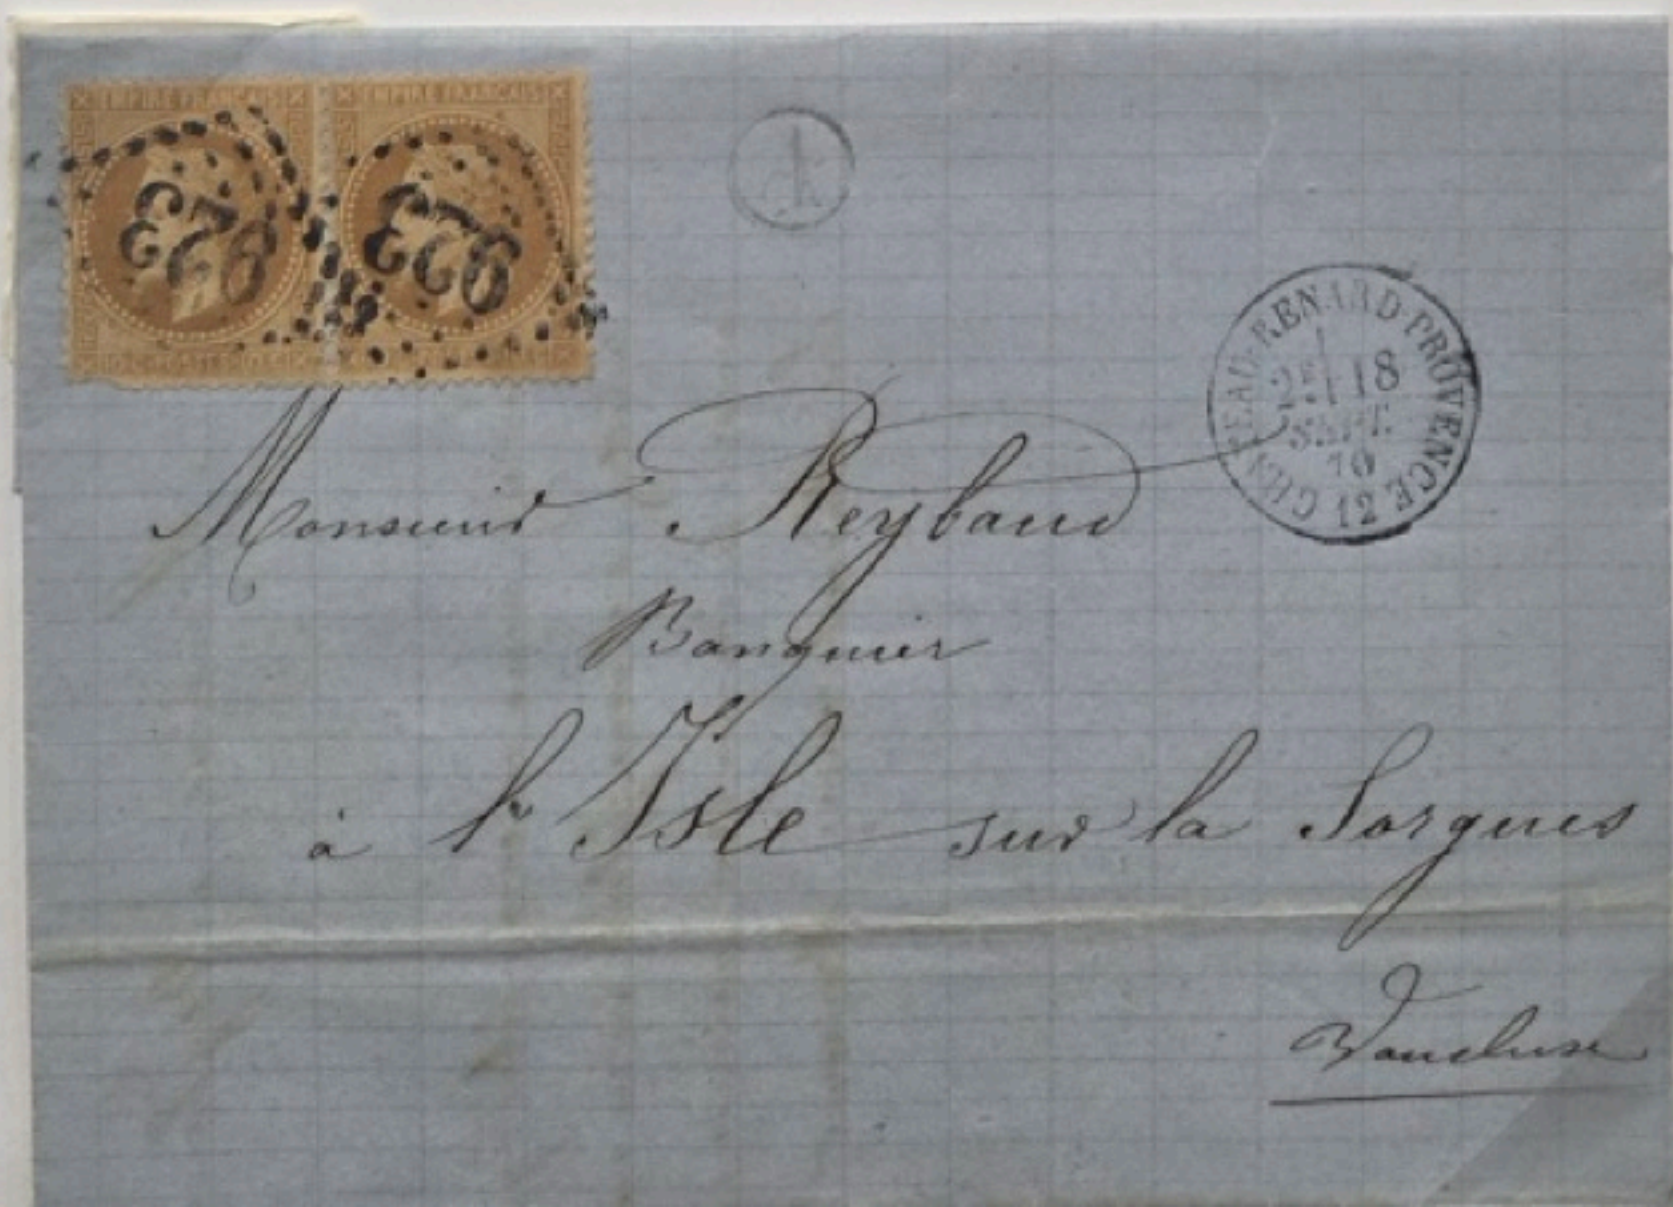 EMPIRE FRANÇAIS EMPIRE FRANÇAIS
923 923
CHATEAU-RENARD-PROVENCE
2E 18
SEPT.
70
12
Monsieur Reybaud
Banquier
à l'Isle sur la Sorgues
Vaucluse